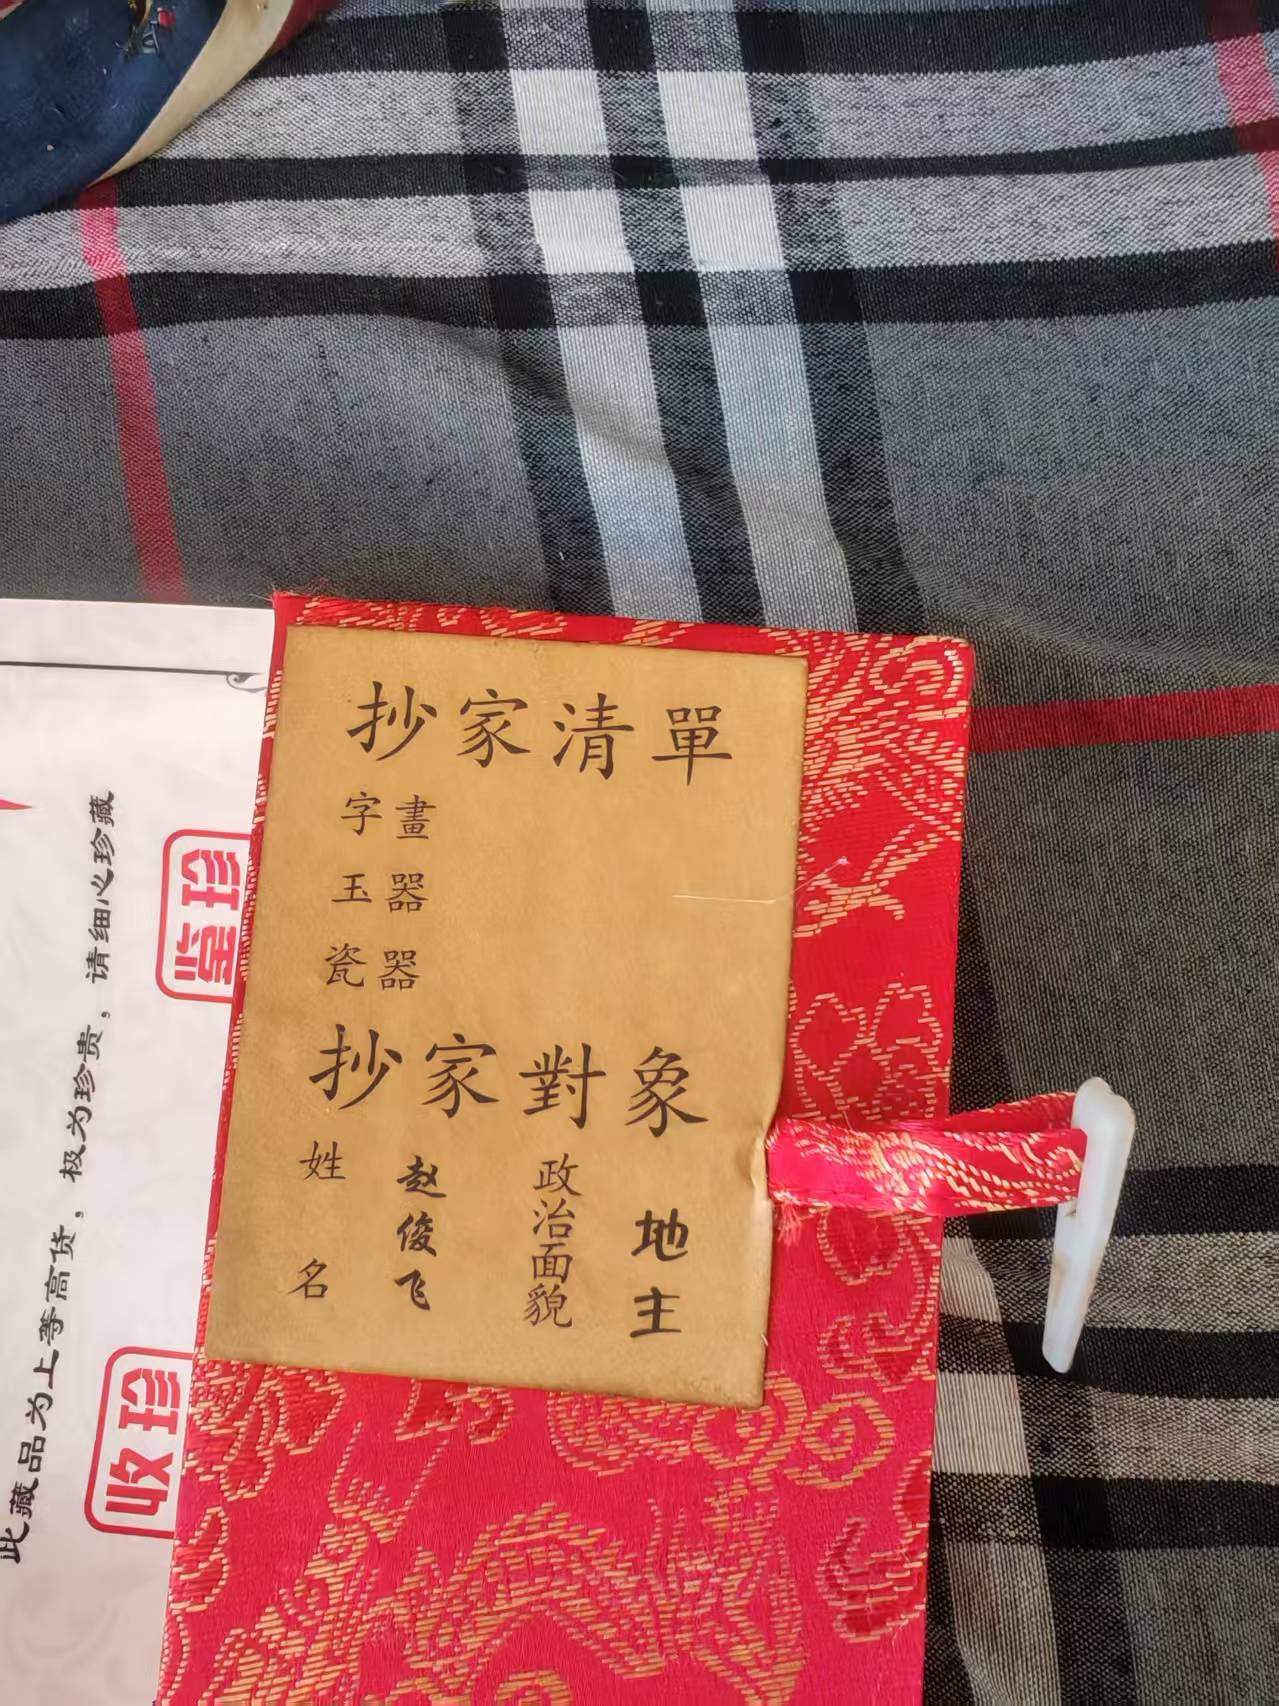 抄家清單
字畫
玉器
瓷器
抄家對象
姓名 赵俊飞 政治面貌 地主
此藏品为上等高货，极为珍贵，请细心珍藏
珍
鉴
珍
收